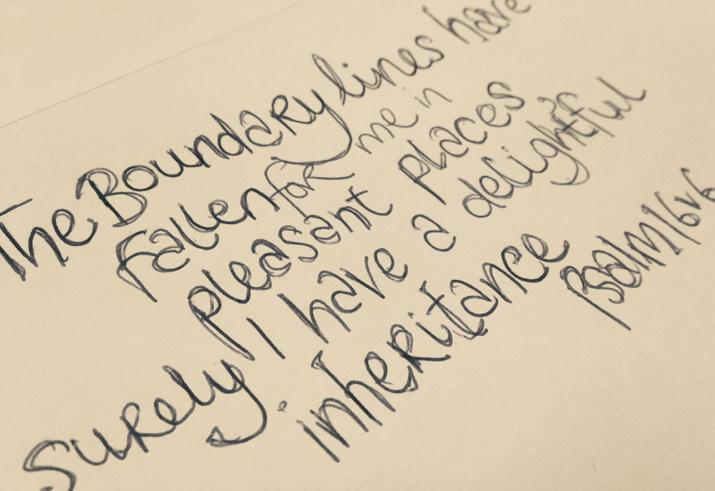 The Boundary lines have
fallen for me in
pleasant places
Surely I have a delightful
inheritance
Psalm 16v6